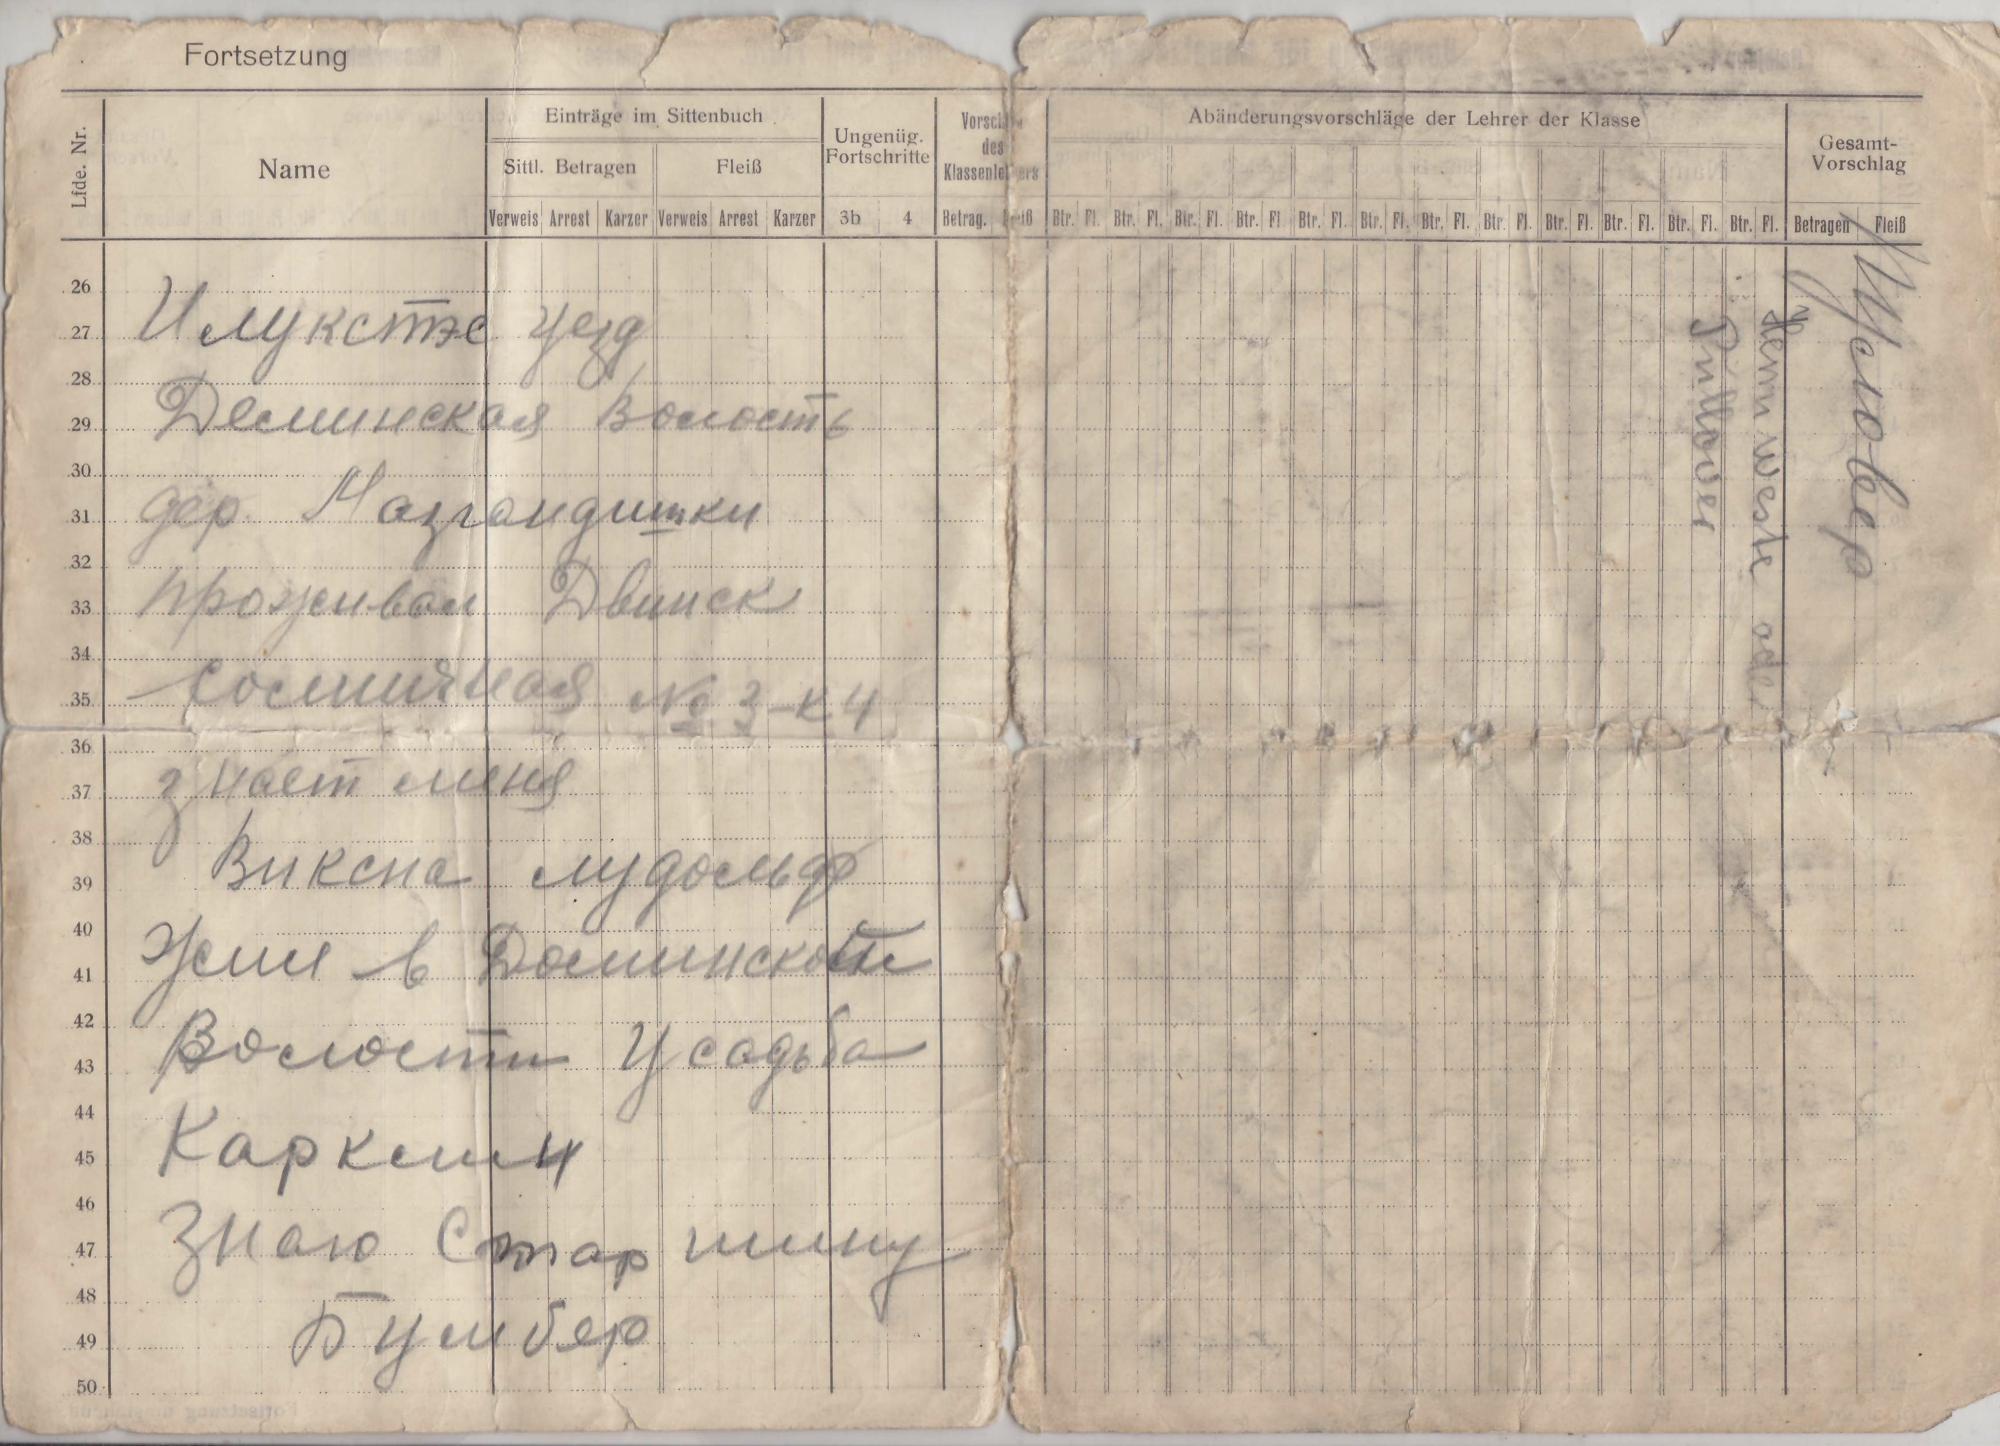 Fortsetzung
Lfde. Nr.
Name
Einträge im Sittenbuch
Sittl. Betragen
Fleiß
Verweis Arrest Karzer Verweis Arrest Karzer
Ungenüg.
Fortschritte
3b 4
Vorschl
des
Klassenle ers
Betrag. iß
Abänderungsvorschläge der Lehrer der Klasse
Btr. Fl. Btr. Fl. Btr. Fl. Btr. Fl Btr. Fl. Btr. Fl. Btr. Fl. Btr. Fl. Btr. Fl. Btr. Fl. Btr. Fl. Btr. Fl.
Gesamt-
Vorschlag
Betragen Fleiß
26
27 Илукстэс уезд
28
29 Деминская Волость
30
31 дер. Мазгандишки
32
33 проживал Двинск
34
35 № 3-к 4
36
37 знает меня
38
39 Виксна лудольф
40
41 Жил в Доминской
42
43 Волости Усадьба
44
45 Карклин
46
47 Знаю Стар шину
48
49 Бумбер
50
Пуловер
Hemmweste oder
Pullover